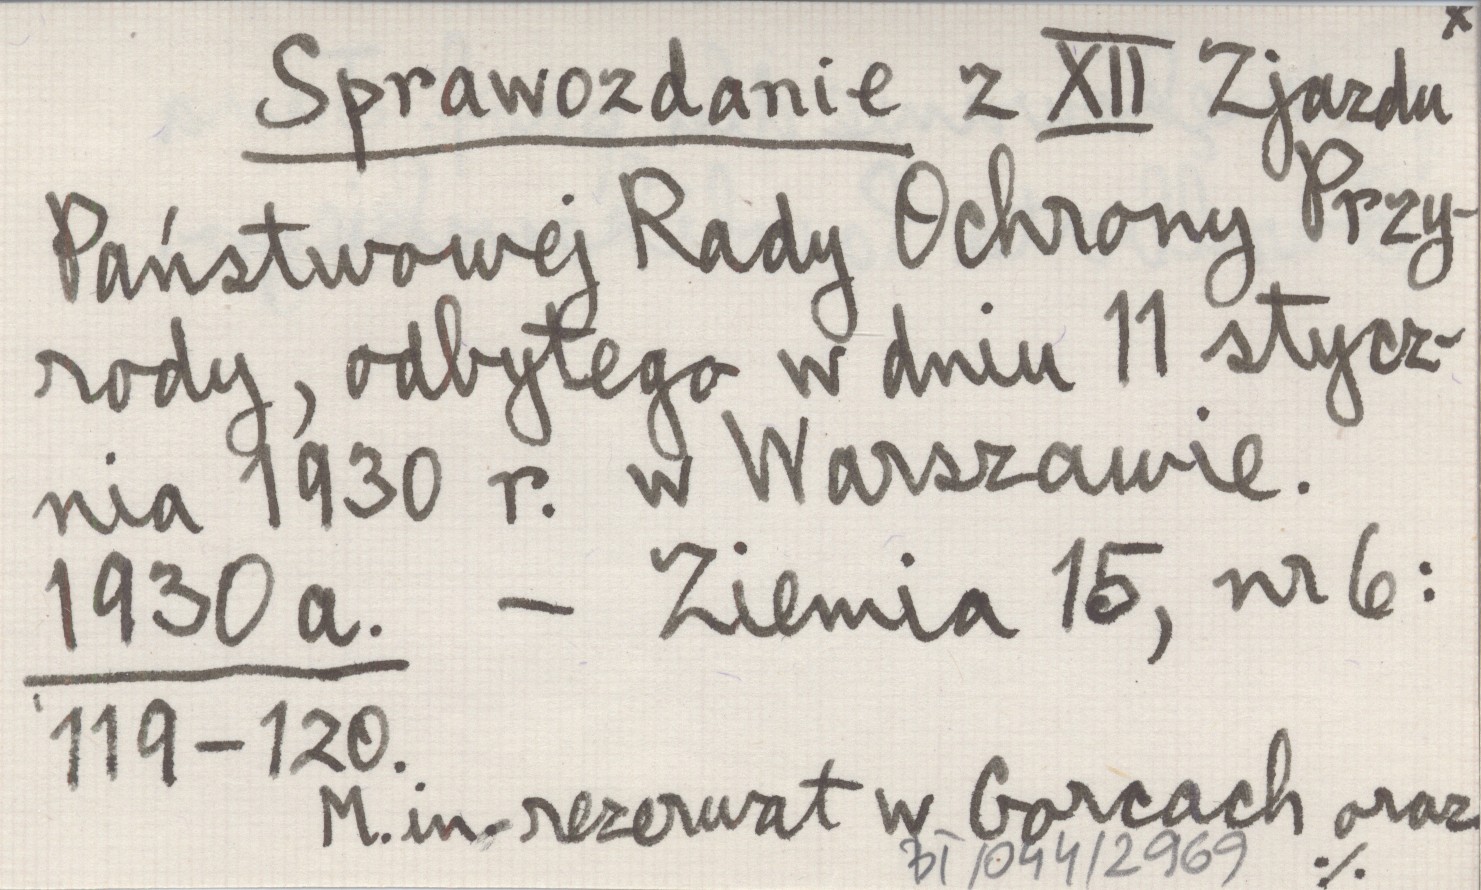 x
Sprawozdanie z XII Zjazdu
Państwowej Rady Ochrony Przy-
rody, odbytego w dniu 11 stycz-
nia 1930 r. w Warszawie.
1930 a. – Ziemia 15, nr 6:
119–120.
M.in. rezerwat w Gorcach oraz
BI/044/2969 ·/.